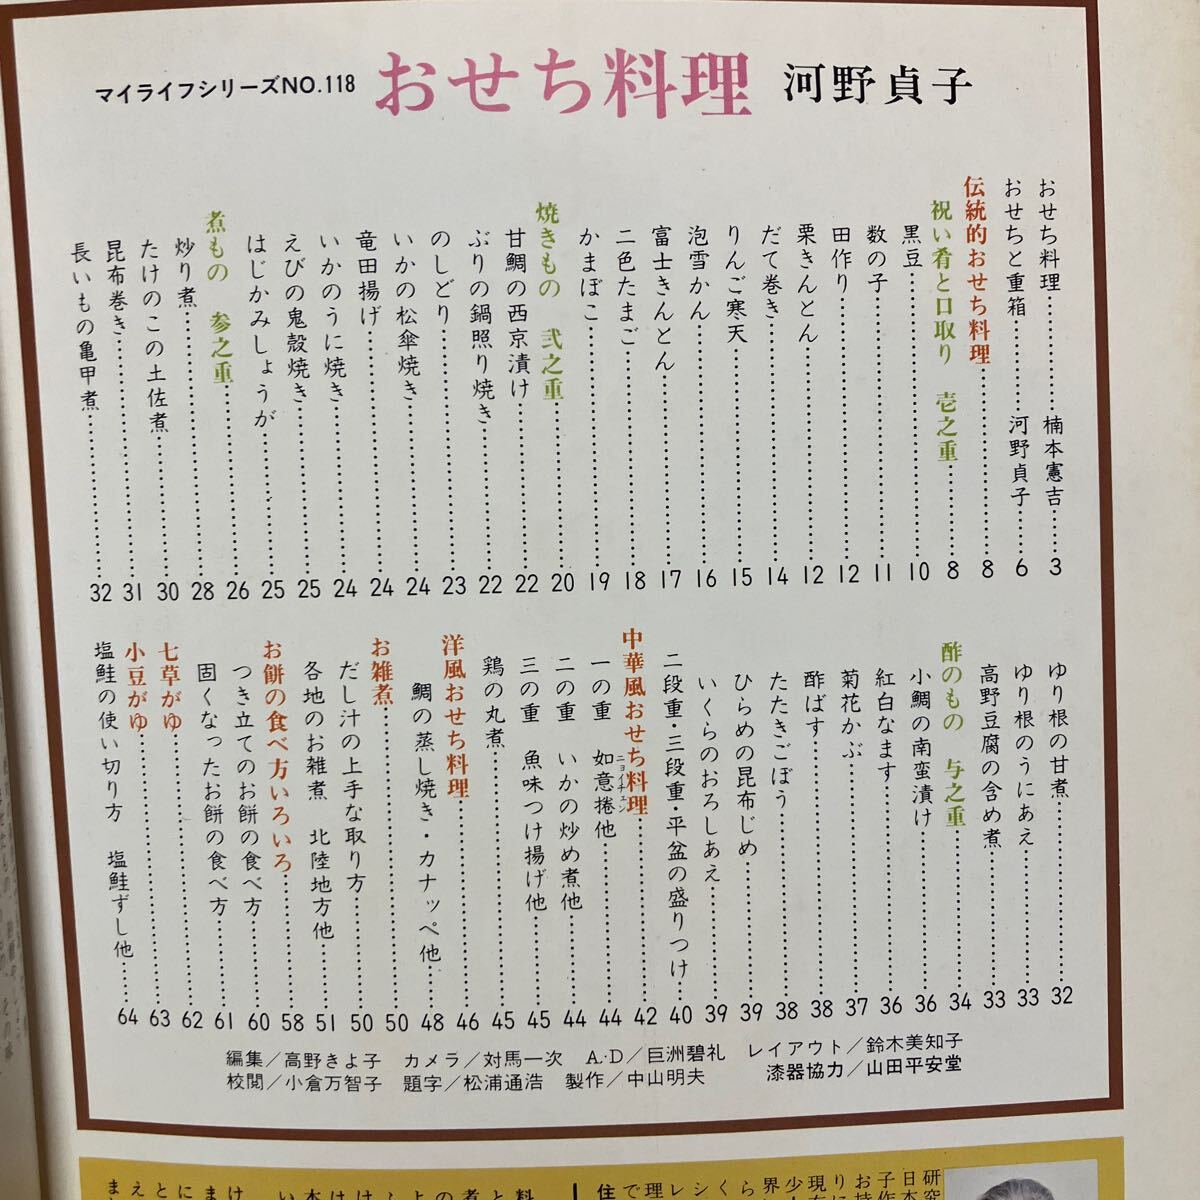 マイライフシリーズNO.118 おせち料理 河野貞子
おせち料理 楠本憲吉 3
おせちと重箱 河野貞子 6
伝統的おせち料理 8
祝い肴と口取り 壱之重 8
黒豆 10
数の子 11
田作り 12
栗きんとん 12
だて巻き 14
りんご寒天 15
泡雪かん 16
富士きんとん 17
二色たまご 18
かまぼこ 19
焼きもの 弐之重 20
甘鯛の西京漬け 22
ぶりの鍋照り焼き 22
のしどり 23
いかの松傘焼き 24
竜田揚げ 24
いかのうに焼き 24
えびの鬼殻焼き 25
はじかみしょうが 25
煮もの 参之重 26
炒り煮 28
たけのこの土佐煮 30
昆布巻き 31
長いもの亀甲煮 32
ゆり根の甘煮 32
ゆり根のうにあえ 33
高野豆腐の含め煮 33
酢のもの 与之重 34
小鯛の南蛮漬け 36
紅白なます 36
菊花かぶ 37
酢ばす 38
たたきごぼう 38
ひらめの昆布じめ 39
いくらのおろしあえ 39
二段重・三段重・平盆の盛りつけ 40
中華風おせち料理 42
一の重 如意捲他 44
ニョイチュエン
二の重 いかの炒め煮他 44
三の重 魚味つけ揚げ他 45
鶏の丸煮 45
洋風おせち料理 46
鯛の蒸し焼き・カナッペ他 48
お雑煮 50
だし汁の上手な取り方 50
各地のお雑煮 北陸地方他 51
お餅の食べ方いろいろ 58
つき立てのお餅の食べ方 60
固くなったお餅の食べ方 61
七草がゆ 62
小豆がゆ 63
塩鮭の使い切り方 塩鮭ずし他 64
編集／高野きよ子 カメラ／対馬一次 A・D／巨洲碧礼 レイアウト／鈴木美知子
校閲／小倉万智子 題字／松浦通浩 製作／中山明夫 漆器協力／山田平安堂